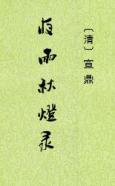 〔清〕宣鼎
夜雨秋燈录